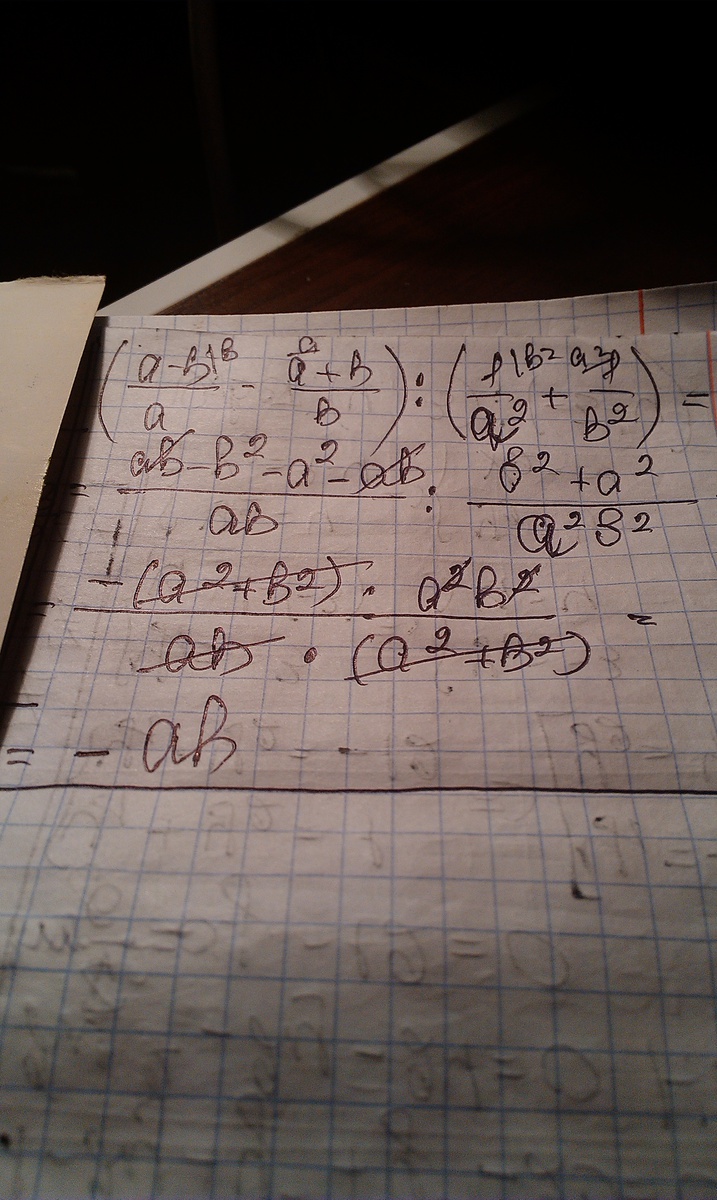 ((a-b\b)/a - (a a+b)/b) : (1\b²/a² + a²/1/b²) =
= (ab-b²-a²-ab)/(ab) : (b²+a²)/(a²b²)
= (-(a²+b²) · a²b²)/(ab · (a²+b²)) =
= - ab